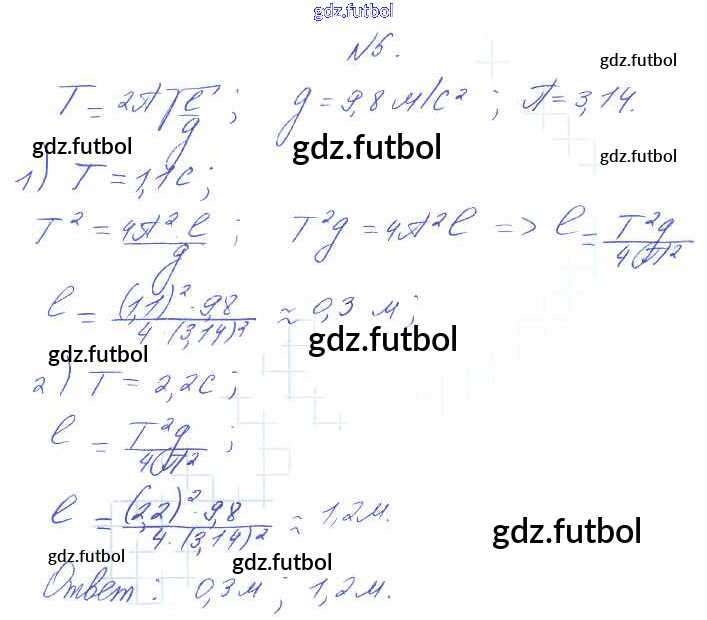 gdz.futbol
№5.
gdz.futbol
T = 2π√(l/g); g = 9,8 м/с²; π = 3,14.
gdz.futbol gdz.futbol gdz.futbol
1) T = 1,1 с;
T² = 4π² l/g; T²g = 4π²l => l = T²g/4(π)²
l = (1,1)²·9,8/4·(3,14)² ≈ 0,3 м;
gdz.futbol gdz.futbol
2) T = 2,2 с;
l = T²g/4(π)²;
l = (2,2)²·9,8/4·(3,14)² ≈ 1,2 м.
gdz.futbol
gdz.futbol gdz.futbol
Ответ: 0,3 м; 1,2 м.